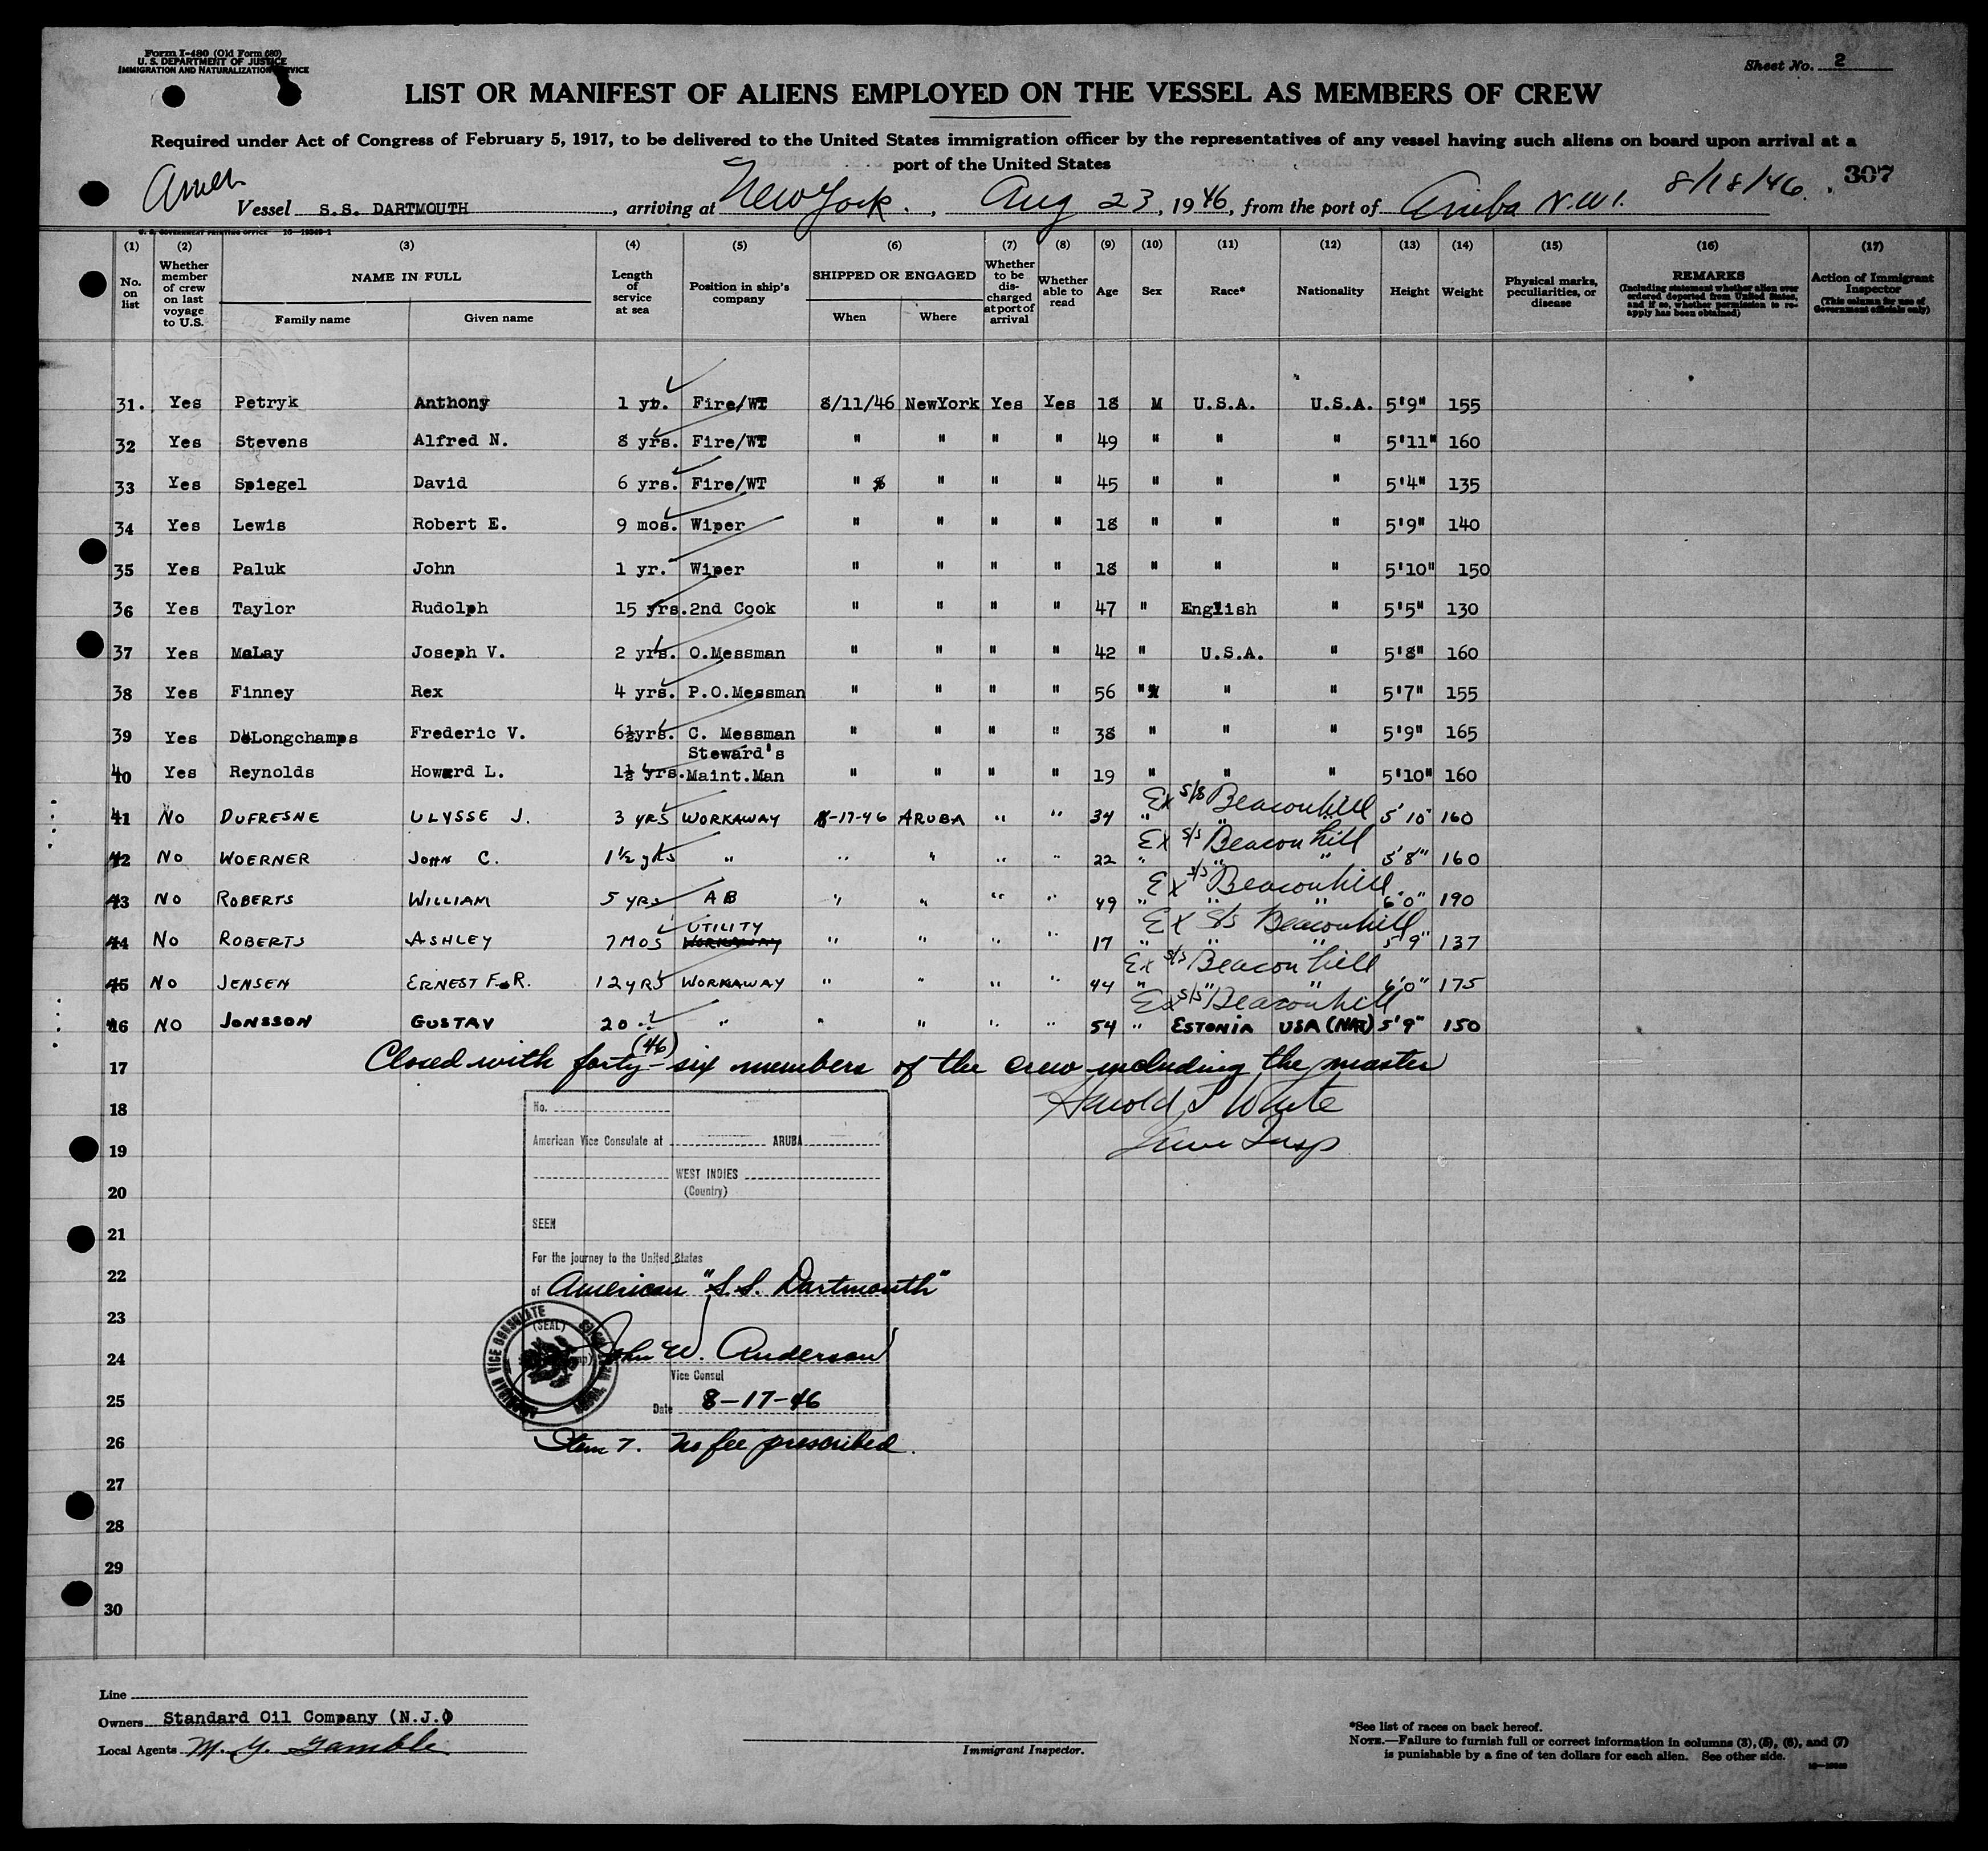 Form I-480 (Old Form 680)
U. S. DEPARTMENT OF JUSTICE
IMMIGRATION AND NATURALIZATION SERVICE
Sheet No. 2
LIST OR MANIFEST OF ALIENS EMPLOYED ON THE VESSEL AS MEMBERS OF CREW
Required under Act of Congress of February 5, 1917, to be delivered to the United States immigration officer by the representatives of any vessel having such aliens on board upon arrival at a
port of the United States
Amer
8/18/46. 307
Vessel S.S. DARTMOUTH, arriving at New York., Aug 23, 1946, from the port of Aruba N.W.I.
U. S. GOVERNMENT PRINTING OFFICE 16-19349-1
(1) (2) (3) (4) (5) (6) (7) (8) (9) (10) (11) (12) (13) (14) (15) (16) (17)
No. on list
Whether member of crew on last voyage to U.S.
NAME IN FULL
Family name Given name
Length of service at sea
Position in ship's company
SHIPPED OR ENGAGED
When Where
Whether to be discharged at port of arrival
Whether able to read
Age Sex Race* Nationality Height Weight
Physical marks, peculiarities, or disease
REMARKS
(Including statement whether alien ever ordered deported from United States, and if so, whether permission to reapply has been obtained)
Action of Immigrant Inspector
(This column for use of Government officials only)
31. Yes Petryk Anthony 1 yr. Fire/WT 8/11/46 NewYork Yes Yes 18 M U.S.A. U.S.A. 5'9" 155
32 Yes Stevens Alfred N. 8 yrs. Fire/WT " " " " 49 " " " 5'11" 160
33 Yes Spiegel David 6 yrs. Fire/WT " " " " 45 " " " 5'4" 135
34 Yes Lewis Robert E. 9 mos. Wiper " " " " 18 " " " 5'9" 140
35 Yes Paluk John 1 yr. Wiper " " " " 18 " " " 5'10" 150
36 Yes Taylor Rudolph 15 yrs. 2nd Cook " " " " 47 " English " 5'5" 130
37 Yes McLay Joseph V. 2 yrs. O.Messman " " " " 42 " U.S.A. " 5'8" 160
38 Yes Finney Rex 4 yrs. P.O.Messman " " " " 56 " " " 5'7" 155
39 Yes DeLongchamps Frederic V. 6½yrs. C. Messman " " " " 38 " " " 5'9" 165
Steward's
40 Yes Reynolds Howard L. 1½ yrs. Maint.Man " " " " 19 " " " 5'10" 160
Ex S/S Beaconhill
41 No DUFRESNE ULYSSE J. 3 YRS WORKAWAY 8-17-46 ARUBA " " 34 " " " 5'10" 160
Ex S/S Beacon hill
42 No WOERNER JOHN C. 1½ yrs " " " " " 22 " " " 5'8" 160
Ex S/S Beaconhill
43 No ROBERTS WILLIAM 5 YRS AB " " " " 49 " " " 6'0" 190
Ex S/S Beaconhill
UTILITY
44 No ROBERTS ASHLEY 7 MOS WORKAWAY " " " " 17 " " " 5'9" 137
Ex S/S Beacon hill
45 No JENSEN ERNEST F.R. 12 YRS WORKAWAY " " " " 44 " " " 6'0" 175
Ex S/S Beaconhill
46 NO JONSSON GUSTAV 20 " " " " " " 54 " ESTONIA USA (NAT) 5'9" 150
(46)
17 Closed with forty-six members of the crew including the master
18 Harold J White
19 Imm Insp
No.
American Vice Consulate at ARUBA
WEST INDIES
(Country)
20
SEEN
21
For the journey to the United States
22
of American "S.S. Dartmouth"
23
(SEAL)
AMERICAN VICE CONSULATE
24 John W. Anderson
Vice Consul
25
Date 8-17-46
26 Item 7. No fee prescribed.
27
28
29
30
Line
Owners Standard Oil Company (N.J.)
Local Agents M. G. Gamble
Immigrant Inspector.
*See list of races on back hereof.
NOTE.—Failure to furnish full or correct information in columns (3), (5), (6), and (7)
is punishable by a fine of ten dollars for each alien. See other side.